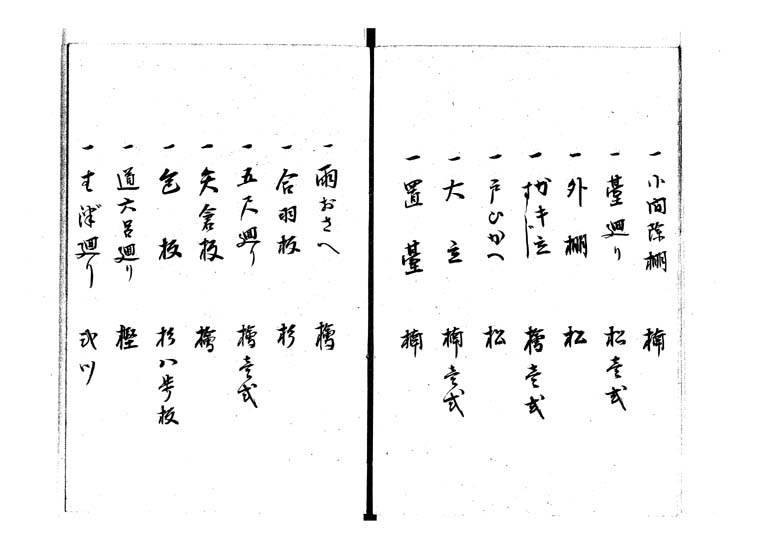 一 小間際棚 楠
一 臺廻り 松壱式
一 外棚 松
一 かき立 すじ 檜壱式
一 戸ひかへ 松
一 大立 楠壱式
一 置臺 楠
一 雨おさへ 檜
一 合羽板 杉
一 五尺廻り 檜壱式
一 矢倉板 檜
一 包板 杉八歩板
一 道六呂廻り 樫
一 廻り